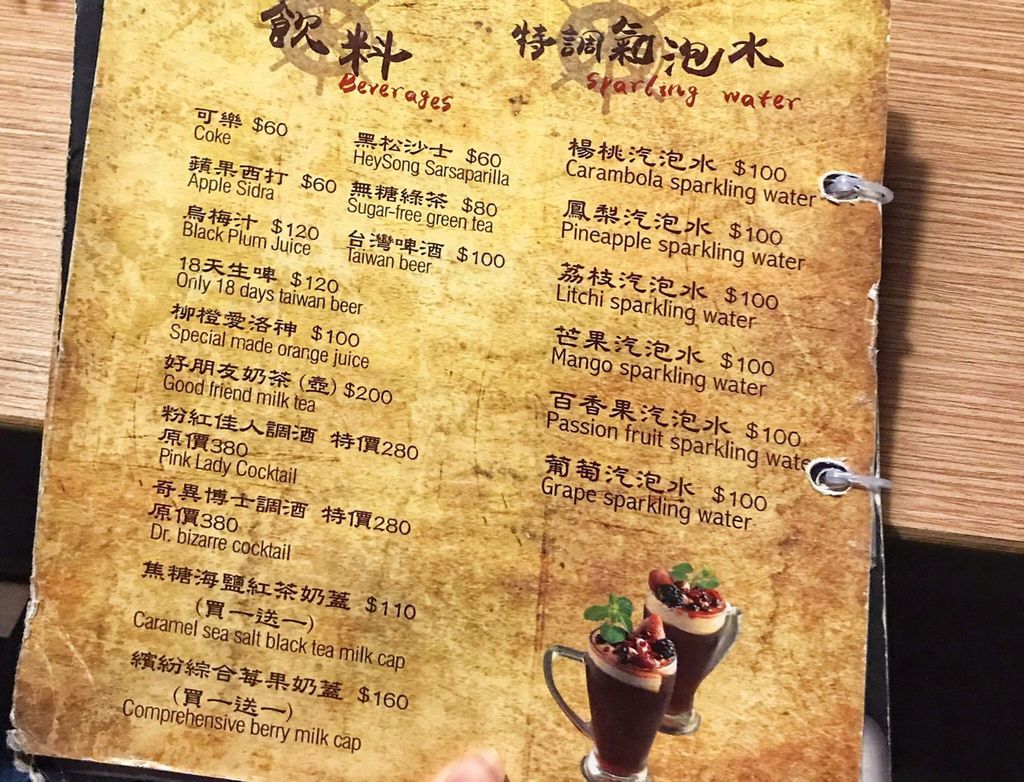 飲料
Beverages
可樂 $60
Coke
黑松沙士 $60
HeySong Sarsaparilla
蘋果西打 $60
Apple Sidra
無糖綠茶 $80
Sugar-free green tea
烏梅汁 $120
Black Plum Juice
台灣啤酒 $100
Taiwan beer
18天生啤 $120
Only 18 days taiwan beer
柳橙愛洛神 $100
Special made orange juice
好朋友奶茶(壺) $200
Good friend milk tea
粉紅佳人調酒 特價280
原價380
Pink Lady Cocktail
奇異博士調酒 特價280
原價380
Dr. bizarre cocktail
焦糖海鹽紅茶奶蓋 $110
(買一送一)
Caramel sea salt black tea milk cap
繽紛綜合莓果奶蓋 $160
(買一送一)
Comprehensive berry milk cap
特調氣泡水
Sparling water
楊桃汽泡水 $100
Carambola sparkling water
鳳梨汽泡水 $100
Pineapple sparkling water
荔枝汽泡水 $100
Litchi sparkling water
芒果汽泡水 $100
Mango sparkling water
百香果汽泡水 $100
Passion fruit sparkling wate
葡萄汽泡水 $100
Grape sparkling water